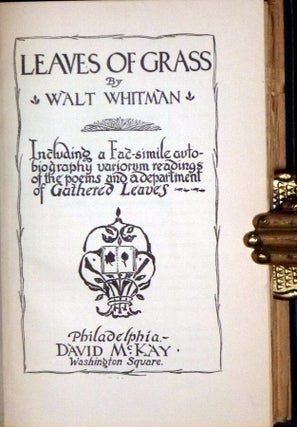 LEAVES OF GRASS
By
WALT WHITMAN
Including a Fac-simile auto-
biography variorum readings
of the poems and a department
of Gathered Leaves
Philadelphia.-
DAVID McKAY.
Washington Square.